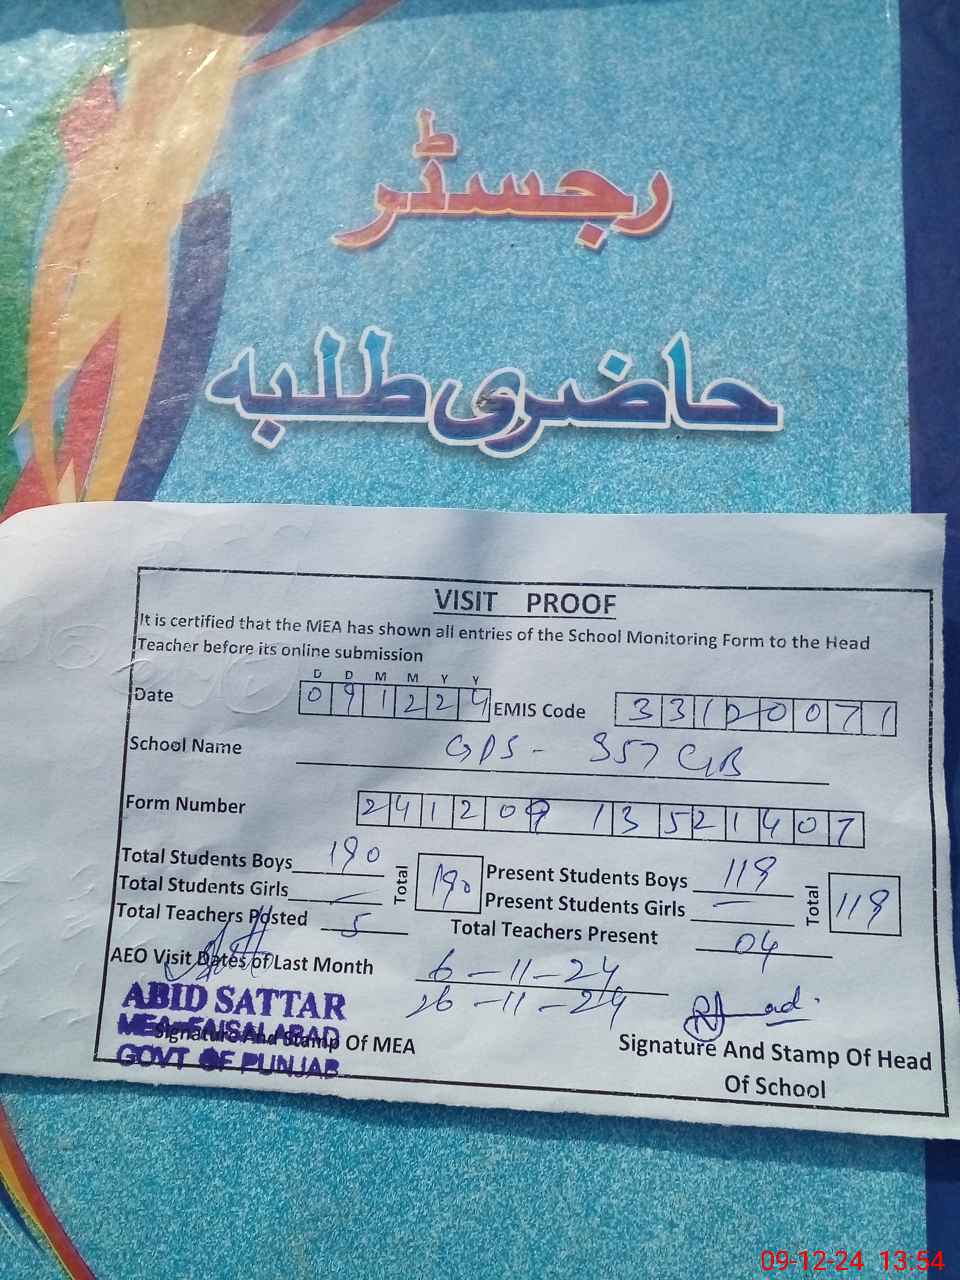 رجسٹر
حاضری طلبہ
VISIT PROOF
It is certified that the MEA has shown all entries of the School Monitoring Form to the Head
Teacher before its online submission
D D M M Y Y
Date 0 9 1 2 2 4 EMIS Code 3 3 1 2 0 0 7 1
School Name GPS - 357 GB
Form Number 2 4 1 2 0 9 1 3 5 2 1 4 0 7
Total Students Boys 190 Total 190 Present Students Boys 118 Total 118
Total Students Girls — Present Students Girls —
Total Teachers Posted 5 Total Teachers Present 04
AEO Visit Dates of Last Month 6-11-24
26-11-24
ABID SATTAR
MEA-FAISALABAD
Signature And Stamp Of MEA
GOVT OF PUNJAB
Signature And Stamp Of Head
Of School
09-12-24 13:54